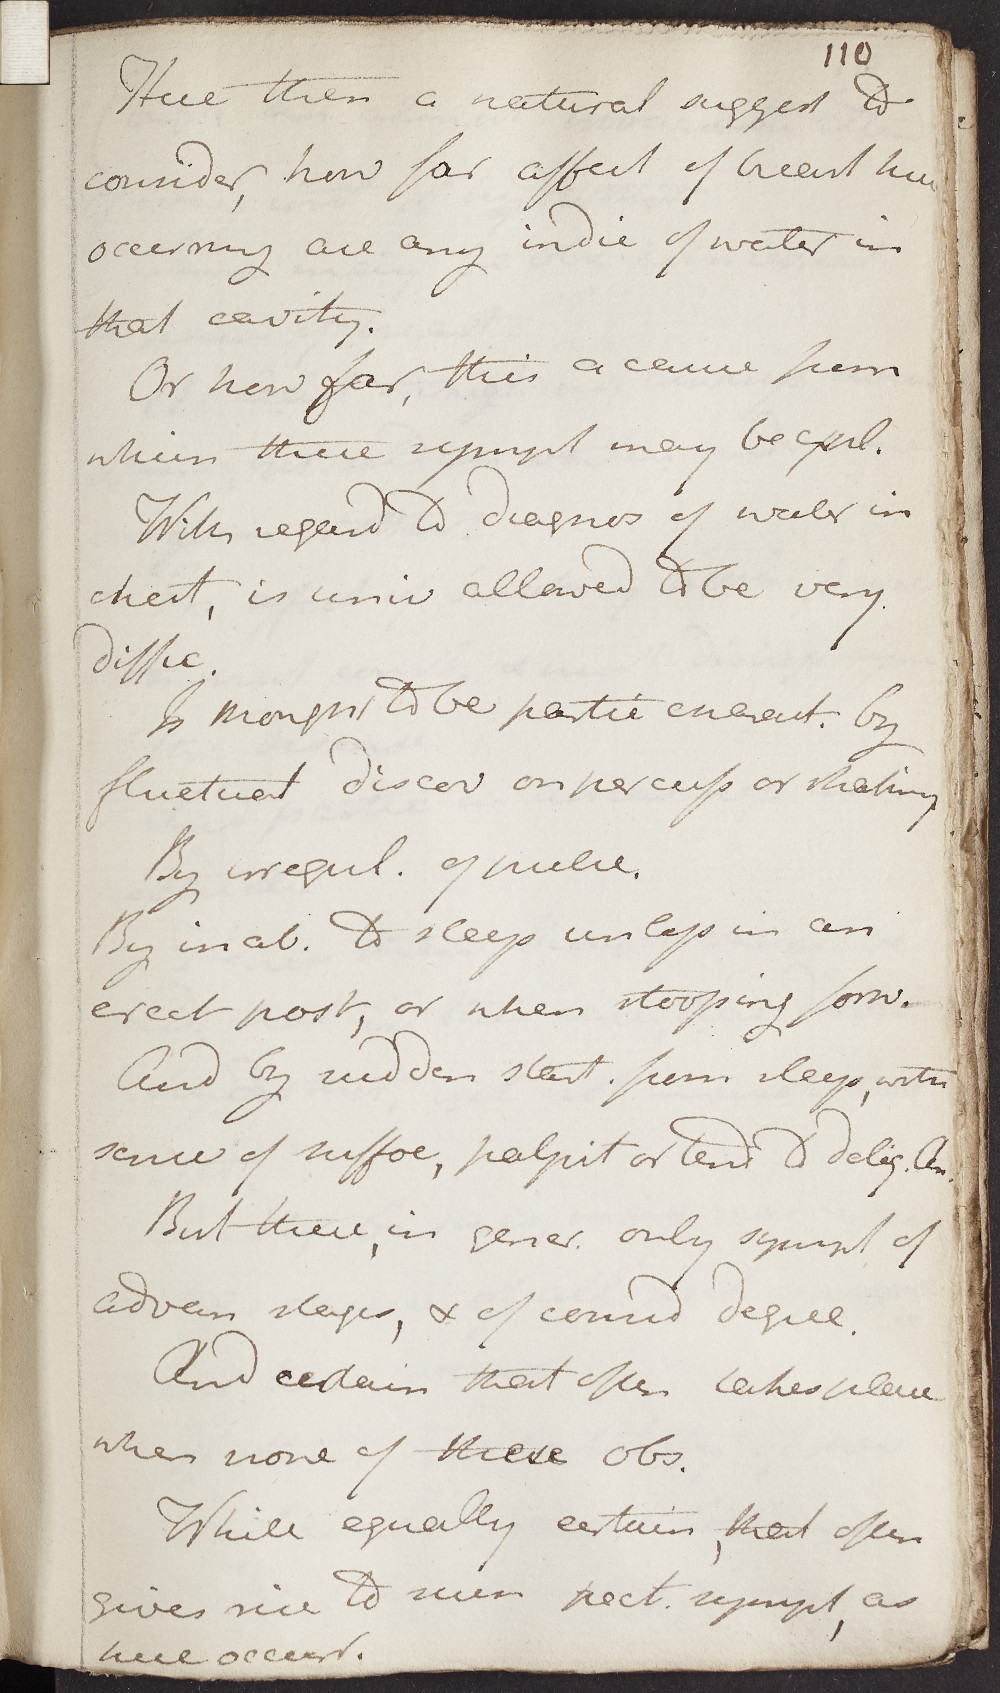 110
Here then a natural suggest to
consider, how far affect of breast here
occurring are any indic of water in
that cavity.
Or how far, this a cause from
which these sympt may be expl.
With regard to diagnos of water in
chest, is univ allowed to be very
diffic.
Is thought to be partic by
fluctuat discov on percuss or shaking
By irregul. of pulse.
By inab. to sleep unless in an
erect post, or when stooping forw.
And by sudden start. from sleep, with
sense of suffoc, palpit or tend to deliq. An.
But these, in gener. only sympt of
advan stages, & of consid degree.
And certain that often takes place
when none of these obs.
While equally certain, that often
gives rise to such pect. sympt, as
here occurr.